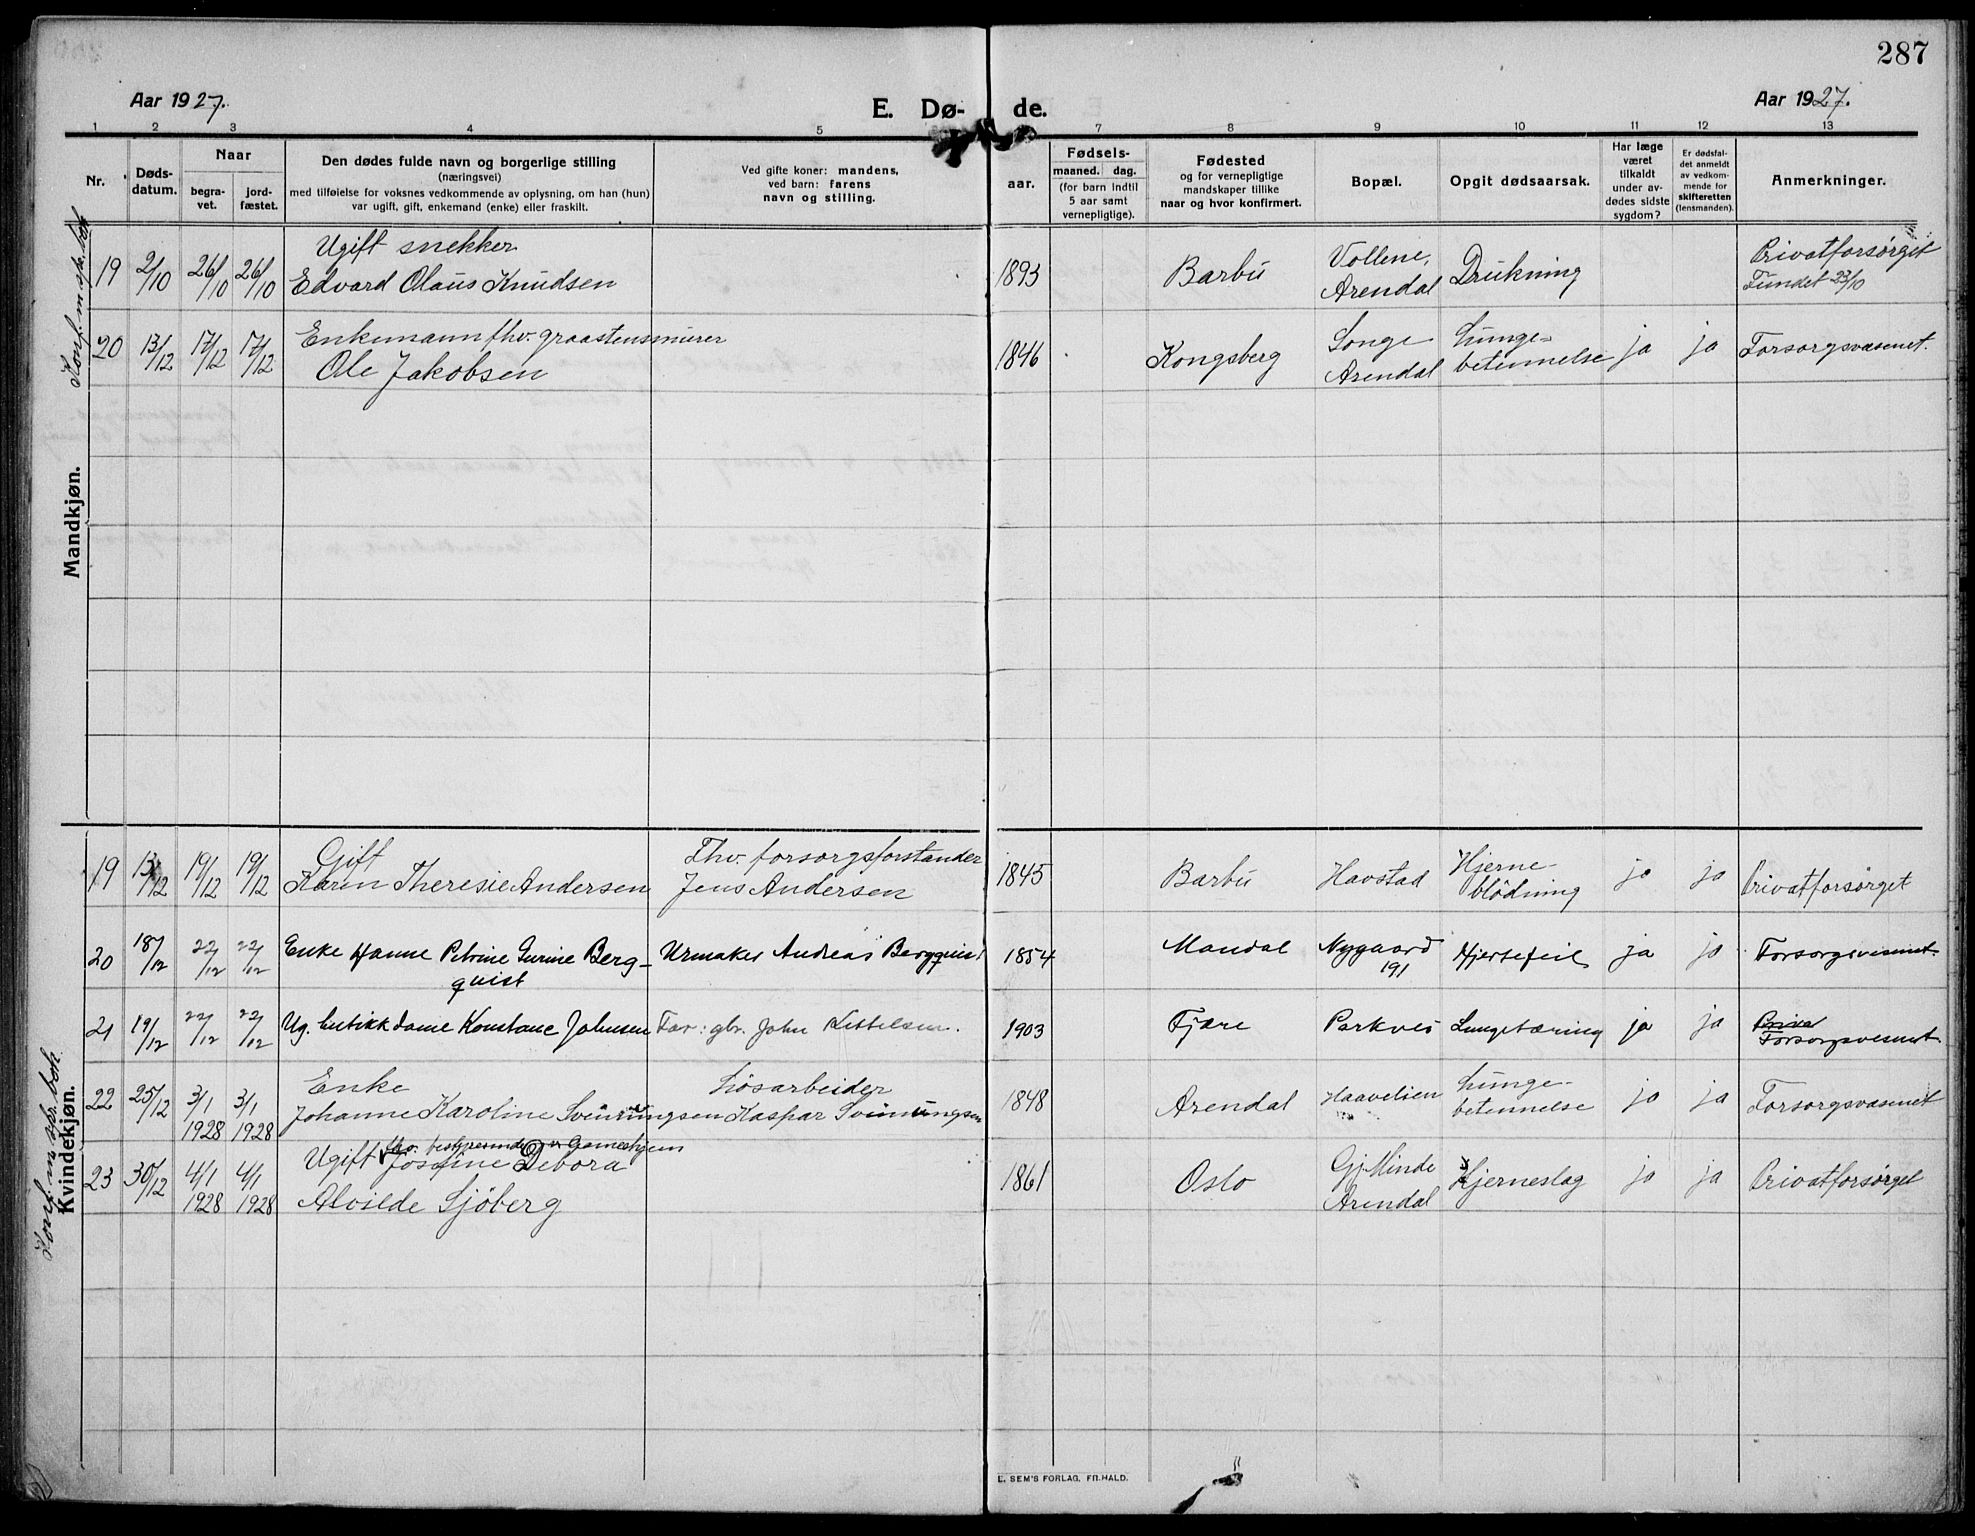 287
Aar 1927.
E. Dø-
de.
Aar 1927.
1 2 3 4 5 7 8 9 10 11 12 13
Nr.
Døds-
datum.
Naar
begra-
vet.
jord-
fæstet.
Den dødes fulde navn og borgerlige stilling
(næringsvei)
med tilføielse for voksnes vedkommende av oplysning, om han (hun)
var ugift, gift, enkemand (enke) eller fraskilt.
Ved gifte koner: mandens,
ved barn: farens
navn og stilling.
aar.
Fødsels-
maaned. dag.
(for barn indtil
5 aar samt
vernepligtige).
Fødested
og for vernepligtige
mandskaper tillike
naar og hvor konfirmert.
Bopæl.
Opgit dødsaarsak.
Har læge
været
tilkaldt
under av-
dødes sidste
sygdom?
Er dødsfal-
det anmeldt
av vedkom-
mende for
skifteretten
(lensmanden).
Anmerkninger.
Mandkjøn.
19 2/10 26/10 26/10 Ugift snekker
Edvard Olaus Knudsen 1893 Barbu Vollene,
Arendal Drukning Privatforsørget
Fundet 23/10
20 13/12 17/12 17/12 Enkemann fhv. graastensmurer
Ole Jakobsen 1846 Kongsberg Songe
Arendal Lunge-
betennelse ja ja Forsorgsvæsenet.
Konf. m.
Kvindekjøn.
19 13/12 19/12 19/12 Gift
Karen Theresie Andersen Fhv. forsorgsforstander
Jens Andersen 1845 Barbu Havstad Hjerne-
blödning ja ja Privatforsørget
20 18/12 22/12 22/12 Enke Hanne Petrine Gurine Berg-
quist Urmaker Andreas Bergquist 1854 Mandal Nygaard
191 Hjertefeil ja ja Forsorgsvesenet.
21 19/12 22/12 22/12 Ug. butikkdame Konstance Johnsen Far: gbr. John Kittelsen. 1903 Fjære Parkvei Lungetæring ja ja Priva
Forsorgsvesenet.
22 25/12 3/1
1928 3/1
1928 Enke
Johanne Karoline Sveinungsen Løsarbeider
Kaspar Sveinungsen 1848 Arendal Haavelien Lunge-
betennelse ja ja Forsorgsvæsenet
23 30/12 4/1
1928 4/1
1928 fhv. bestyrerinde Gamlehjem
Ugift Josefine Debora
Alvilde Sjöberg 1861 Oslo Gj. Minde
Arendal Hjerneslag ja ja Privatforsørget
Konf. m.
E. SEM'S FORLAG, FR.HALD.